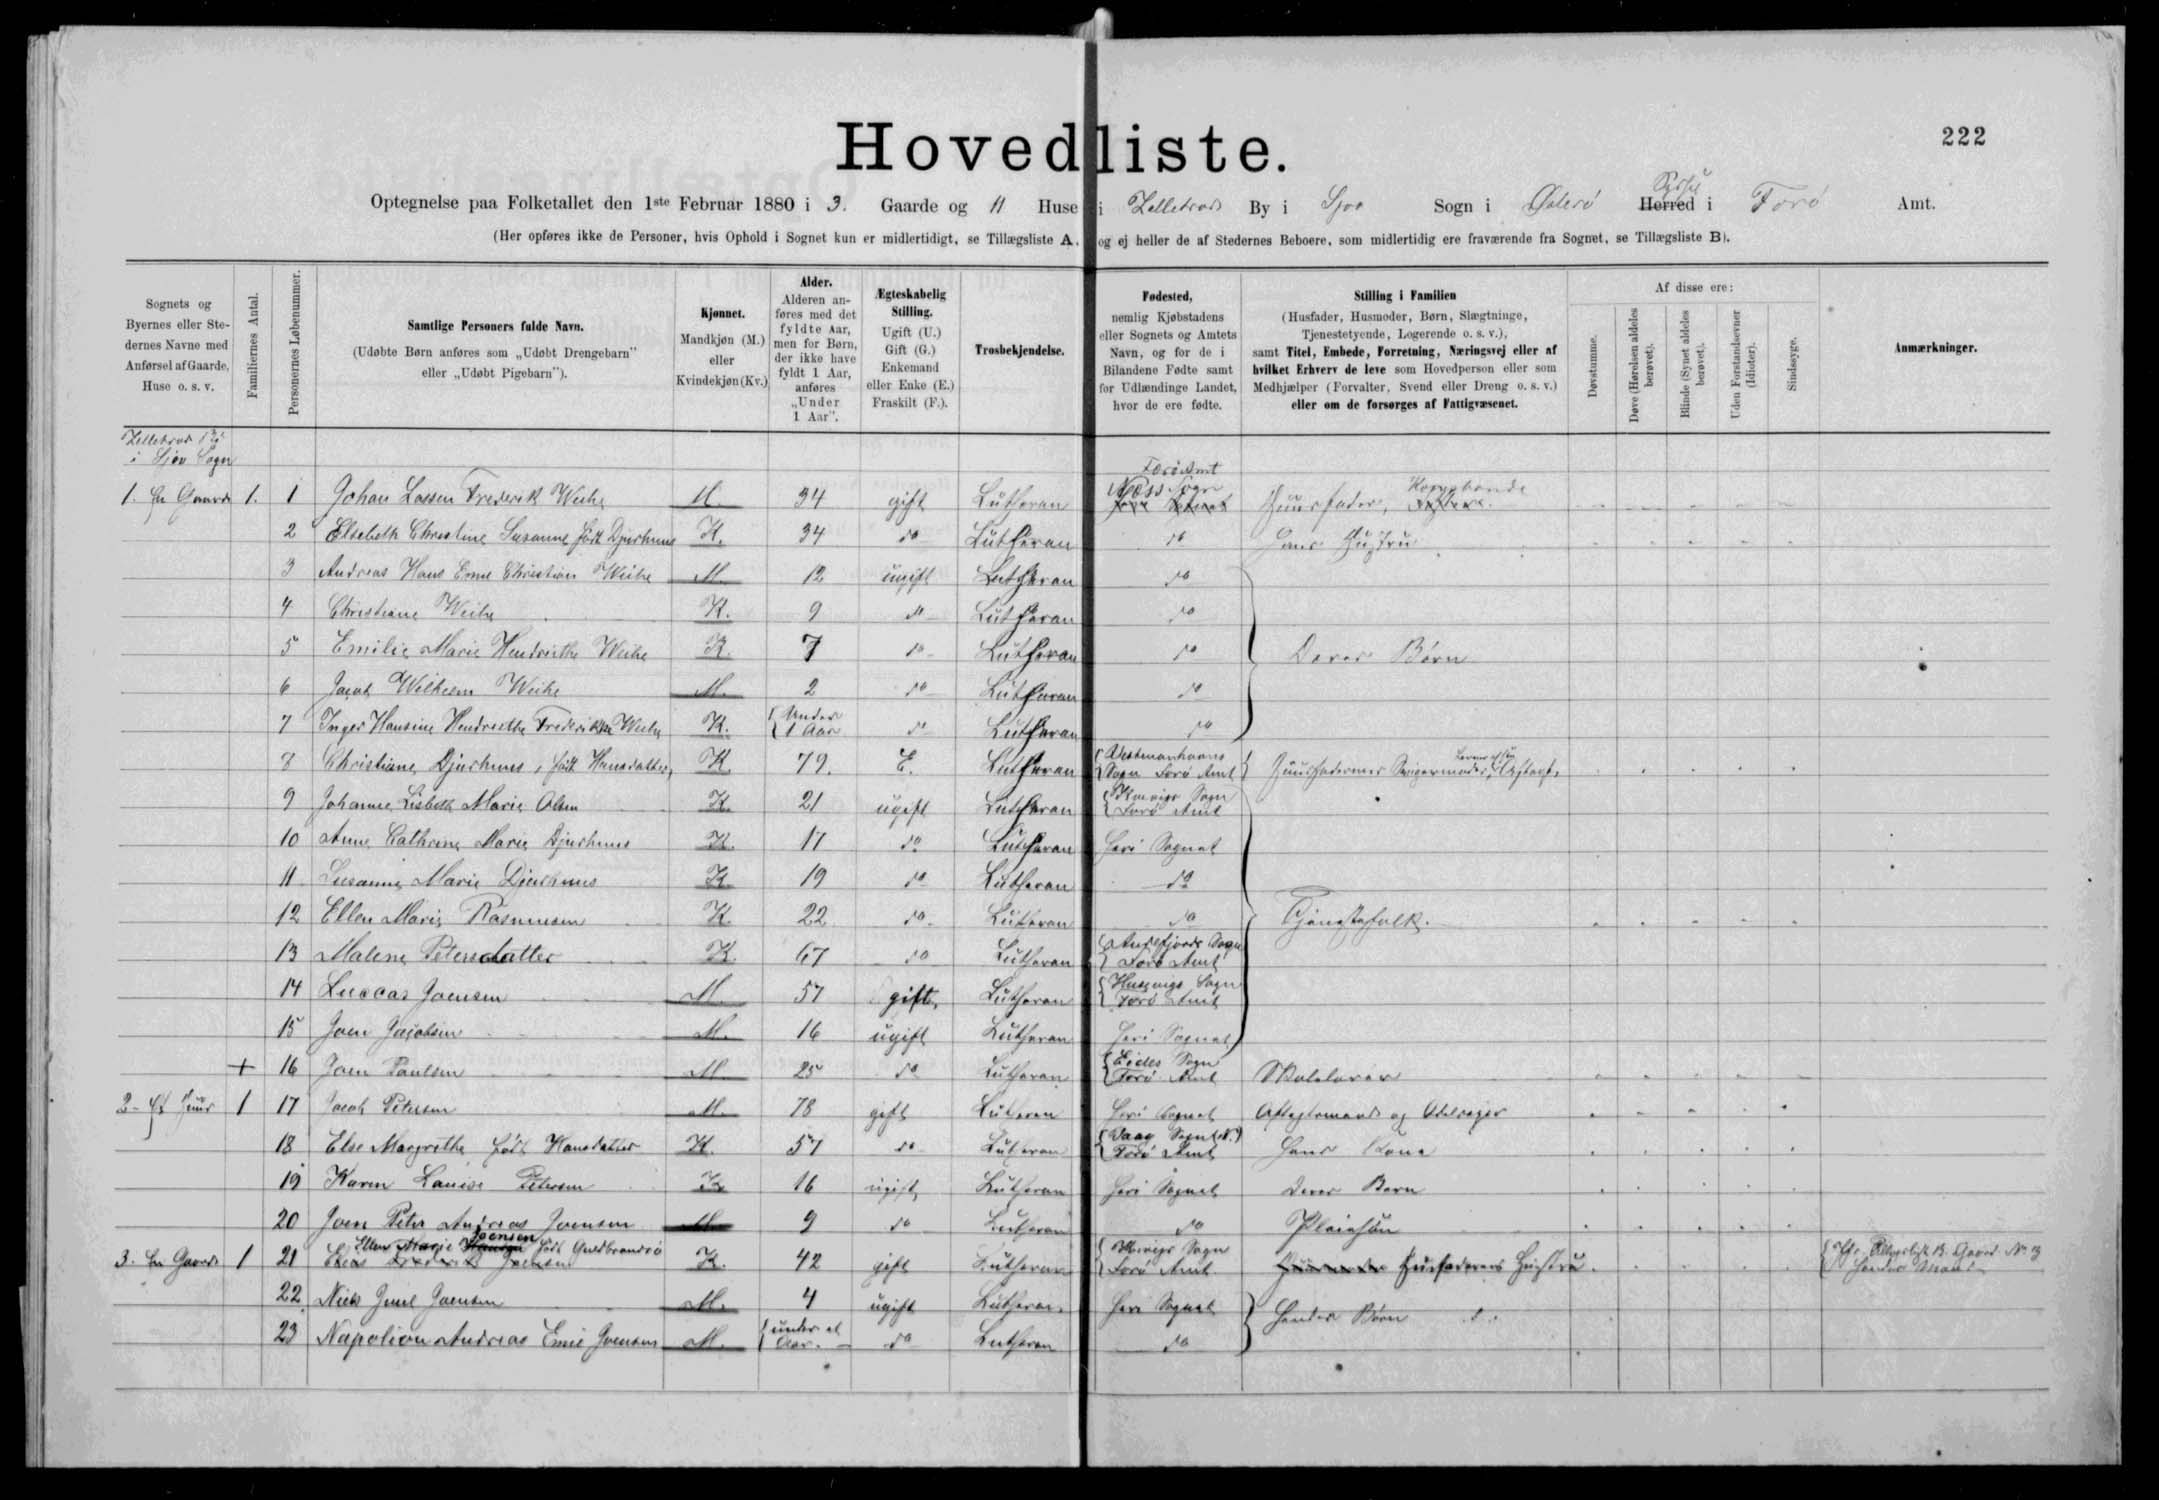 Hovedliste.
222
Optegnelse paa Folketallet den 1ste Februar 1880 i 3. Gaarde og 11 Huse i Zelletrod By i Sjov Sogn i Østerø Herred Syssel i Færø Amt.
(Her opføres ikke de Personer, hvis Ophold i Sognet kun er midlertidigt, se Tillægsliste A. og ej heller de af Stedernes Beboere, som midlertidig ere fraværende fra Sognet, se Tillægsliste B).
Sognets og Byernes eller Stedernes Navne med Anførsel af Gaarde, Huse o. s. v.
Familiernes Antal.
Personernes Løbenummer.
Samtlige Personers fulde Navn.
(Udøbte Børn anføres som „Udøbt Drengebarn” eller „Udøbt Pigebarn”).
Kjønnet.
Mandkjøn (M.) eller Kvindekjøn (Kv.)
Alder.
Alderen anføres med det fyldte Aar, men for Børn, der ikke have fyldt 1 Aar, anføres „Under 1 Aar”.
Ægteskabelig Stilling.
Ugift (U.) Gift (G.) Enkemand eller Enke (E.) Fraskilt (F.).
Trosbekjendelse.
Fødested,
nemlig Kjøbstadens eller Sognets og Amtets Navn, og for de i Bilandene Fødte samt for Udlændinge Landet, hvor de ere fødte.
Stilling i Familien
(Husfader, Husmoder, Børn, Slægtninge, Tjenestetyende, Logerende o. s. v.),
samt Titel, Embede, Forretning, Næringsvej eller af hvilket Erhverv de leve som Hovedperson eller som Medhjælper (Forvalter, Svend eller Dreng o. s. v.) eller om de forsørges af Fattigvæsenet.
Af disse ere:
Døvstumme.
Døve (Hørelsen aldeles berøvet).
Blinde (Synet aldeles berøvet).
Uden Forstandsevner (Idioter).
Sindssyge.
Anmærkninger.
Zelletrod By
i Sjov Sogn
Færø Amt
1. En Gaard 1. 1 Johan Lassen Frederik Weihe M. 34 gift Lutheran Næss Sogn Huusfader, Kongsbonde
2 Elsebeth Christine Susanne født Djurhuus K. 34 do Lutheran do Hans Hustru
3 Andreas Hans Emil Christian Weihe M. 12 ugift Lutheran do
4 Christiane Weihe K. 9 do Lutheran do
5 Emilie Marie Hendrikthe Weihe K. 7 do Lutheran do Deres Børn
6 Jacob Wilhelm Weihe M. 2 do Lutheran do
7 Inger Hansine Hendrikthe Frederikke Weihe K. Under 1 Aar do Lutheran do
8 Christiane Djurhuus, født Hansdatter, K. 79. E. Lutheran Vestmanhavns Sogn Færø Amt Huusfaderens Svigermoder, Lever af sin Aftægt.
9 Johanne Lisbeth Marie Olsen K. 21 ugift Lutheran Sogn Færø Amt
10 Anne Cathrine Marie Djurhuus K. 17 do Lutheran Heri Sognet
11 Susanne Marie Djurhuus K. 19 do Lutheran do
12 Ellen Marie Rasmussen K. 22 do Lutheran do Tjenestefolk.
13 Malene Petersdatter K. 67 do Lutheran Andefjords Sogn Færø Amt
14 Luccas Joensen M. 57 gift, Lutheran Sogn Færø Amt
15 Joen Jacobsen M. 16 ugift Lutheran Heri Sognet
+ 16 Joen Paulsen M 25 do Lutheran Eides Sogn Færø Amt Skolelærer
2- Et Huus 1 17 Jacob Petersen M. 78 gift Lutheran Heri Sognet Aftægtsmand og Odelsejer
18 Else Margrethe født Hansdatter K. 57 do Lutheran Vaag Sogn (N.) Færø Amt Hans Kone
19 Karen Louise Petersen K 16 ugift Lutheran Heri Sognet Deres Barn
20 Joen Peter Andreas Joensen M 9 do Lutheran do Pleiesøn
3. En Gaard 1 21 Ellen Marie Joensen født Guldbrandsø K. 42 gift Lutheran Sogn Færø Amt Husfaderens Hustru Gaard No 3 hendes Mand
22 Niels Juul Joensen M. 4 ugift Lutheran Heri Sognet Hendes Børn
23 Napolion Andreas Emil Joensen M. under et Aar. do Lutheran do